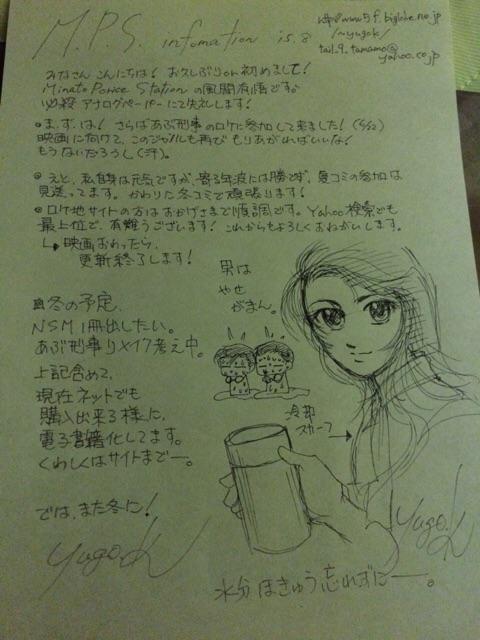 M.P.S. infomation '15.8
http://www5f.biglobe.ne.jp
/~yugok/
tail.9.tamamo@
yahoo.co.jp
みなさん こんにちは! お久しぶり or 初めまして!
Minato Porice Station の風間有悟です。
必殺 アナログペーパーにて失礼します!
まずは! さらばあぶ刑事のロケに参加して来ました!(5/22)
映画に向けて、このジャンルも再び もりあがればいいな!
もうないだろうし(汗)。
えと、私自身は元気ですが、寄る年波には勝てず、夏コミの参加は
見送ってます。かわりた冬コミで頑張ります!
ロケ地サイトの方はおかげさまで順調です。Yahoo検索でも
最上位で、有難うございます! これからもよろしくおねがいします。
映画おわったら、
更新終了します!
冬の予定、
NSM 1冊出したい。
あぶ刑事リメイク考え中。
上記含めて、
現在ネットでも
購入出来る様に、
電子書籍化してます。
くわしくはサイトまでー。
では、また冬に!
Yugo.K
男は
やせ
がまん。
冷却
スカーフ→
Yugo.K
水分 ほきゅう忘れずにー。